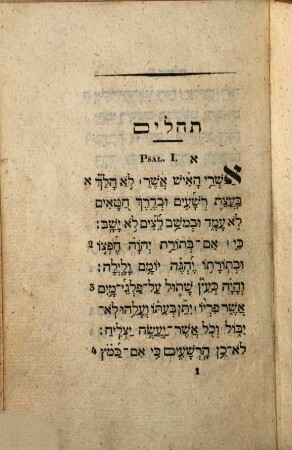 תהלים
PSAL. I. א
אַשְׁרֵי הָאִישׁ אֲשֶׁר ׀ לֹא הָלַךְ א
בַּעֲצַת רְשָׁעִים וּבְדֶרֶךְ חַטָּאִים
לֹא עָמָד וּבְמוֹשַׁב לֵצִים לֹא יָשָׁב׃
2 כִּי ׀ אִם־בְּתוֹרַת יְהוָֹה חֶפְצוֹ
וּבְתוֹרָתוֹ יֶהְגֶּה יוֹמָם וָלָיְלָה׃
3 וְהָיָה כְּעֵץ שָׁתוּל עַל־פַּלְגֵי־מָיִם
אֲשֶׁר פִּרְיוֹ ׀ יִתֵּן בְּעִתּוֹ וְעָלֵהוּ לֹא־
יִבּוֹל וְכֹל אֲשֶׁר־יַעֲשֶׂה יַצְלִיחַ׃
4 לֹא־כֵן הָרְשָׁעִים כִּי אִם־כַּמֹּץ
1